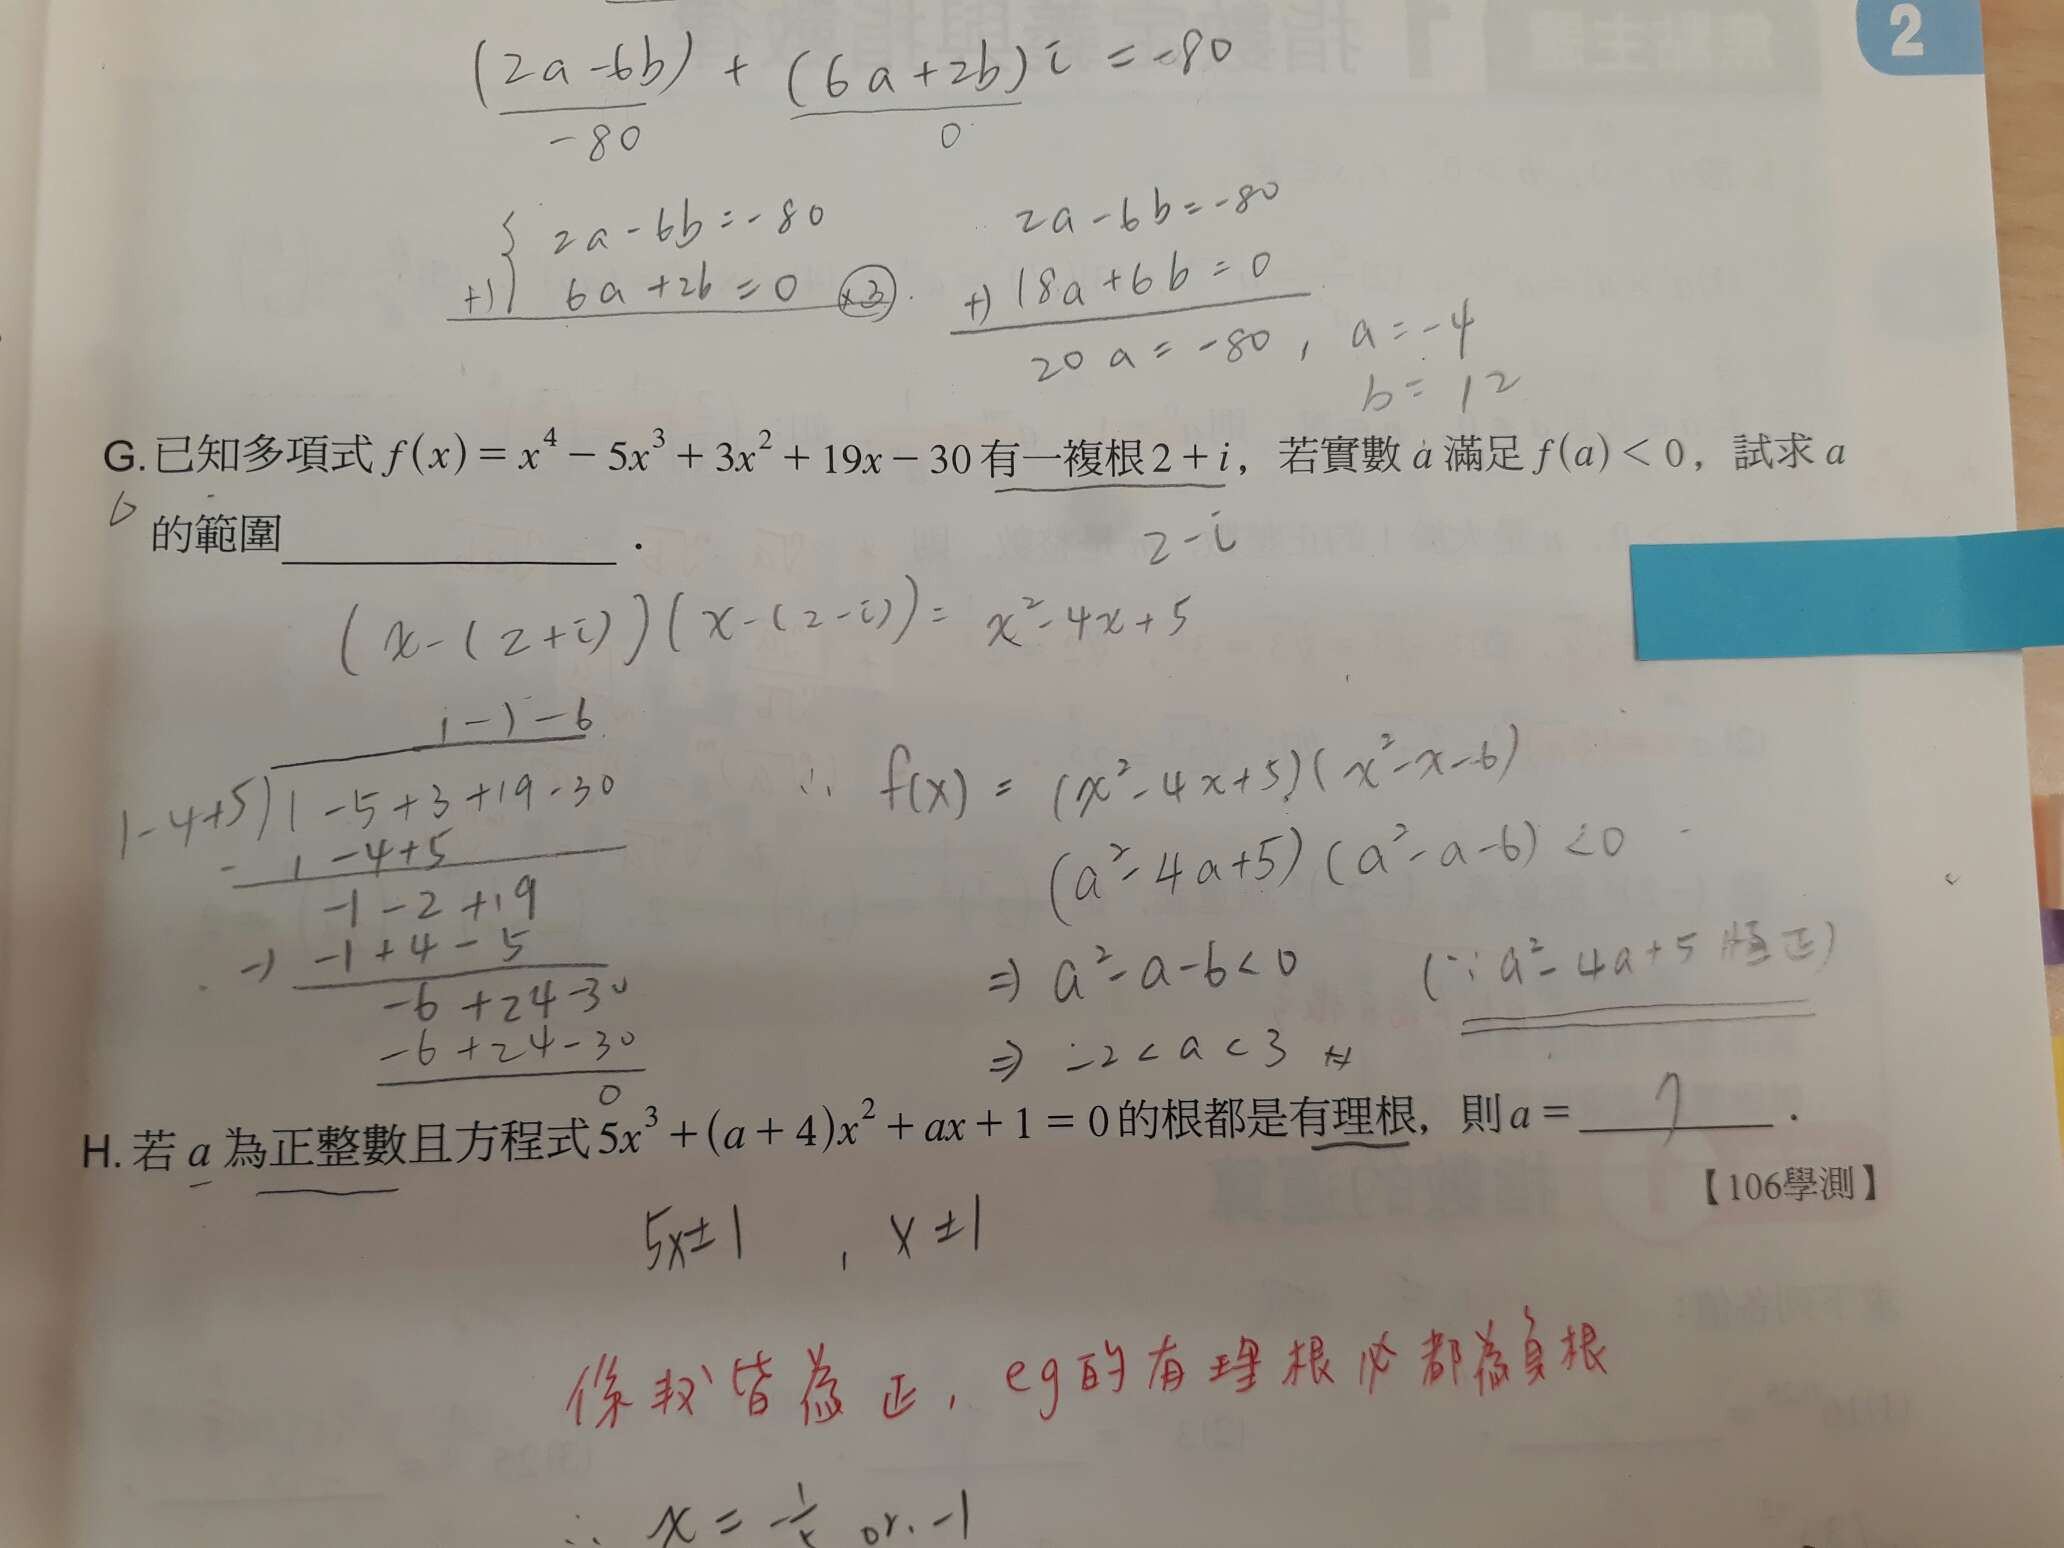 2
(2a-6b) + (6a+2b)i = -80
-80 0
2a-6b=-80
+) 6a+2b=0 ×3
2a-6b=-80
+) 18a+6b=0
20a=-80, a=-4
b=12
G. 已知多項式 f(x) = x⁴ − 5x³ + 3x² + 19x − 30 有一複根 2 + i，若實數 a 滿足 f(a) < 0，試求 a
的範圍 .
2-i
(x-(2+i))(x-(2-i)) = x²-4x+5
1-1-6
1-4+5)1-5+3+19-30
- 1-4+5
-1-2+19
-) -1+4-5
-6+24-30
-6+24-30
0
∴ f(x) = (x²-4x+5)(x²-x-6)
(a²-4a+5)(a²-a-6)<0
⇒ a²-a-6<0 (∵a²-4a+5 恆正)
⇒ -2<a<3
H. 若 a 為正整數且方程式 5x³ + (a + 4)x² + ax + 1 = 0 的根都是有理根，則 a = 7 .
【106學測】
5x±1 , x±1
係数皆為正, eg的有理根必都為負根
∴ x = or. -1